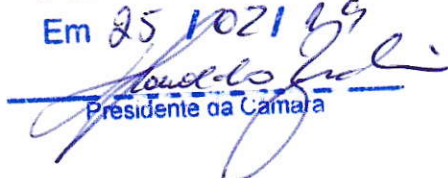 Em 25/02/19
Presidente da Câmara